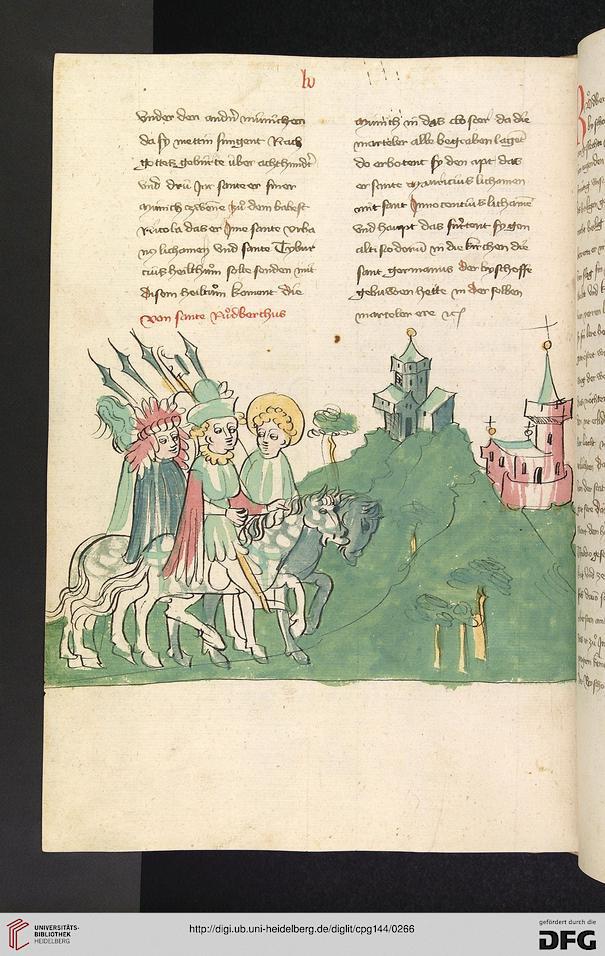 lv
vnder den andern münichen
da sy mettin singent Nach
gottes gebürte über achthundert
vnd drü Jar sante er siner
münich zwene zu dem babest
Nicola das er Ime sante vrba
nus lichomen vnd sante Tybur
cius heilthum solte senden mit
disem heiltum koment die
von sante Rüdberchus
münich in das closter da die
marteler alle begraben lagent
do erbotent sy den apt das
er sante Mauricius lichomen
mit sant Innocentius lichome
vnd haupt das fürtent sy gon
altisiodorum in die kirchen die
sant germanus der byschoffe
gebuwen hette in der selben
marteler ere
UNIVERSITÄTS-
BIBLIOTHEK
HEIDELBERG
http://digi.ub.uni-heidelberg.de/diglit/cpg144/0266
gefördert durch die
DFG